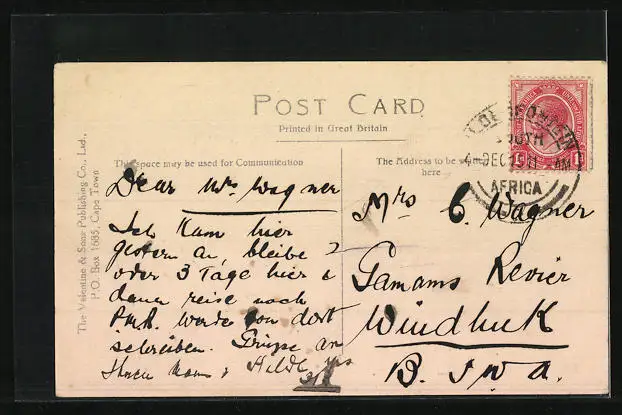 POST CARD
Printed in Great Britain
This space may be used for Communication
The Address to be written here
The Valentine & Sons Publishing Co., Ltd.,
P.O. Box 1685, Cape Town
SOUTH
AFRICA
Dear Mrs Wagner
Ich kam hier
gestern an, bleibe 2
oder 3 Tage hier &
dann reise nach
werde von dort
schreiben. Grüsse an
Ihren Mann & Hilde
Mrs C. Wagner
Gamams Revier
Windhuk
B. S. W. A.